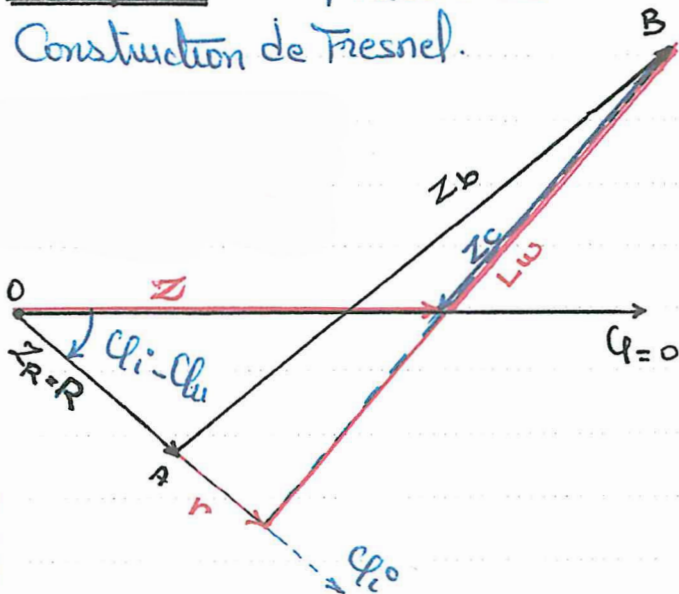 Construction de Fresnel.
B
Zb
Zc
Lw
O
Z
φ=0
φi-φu
ZR=R
A
r
φi